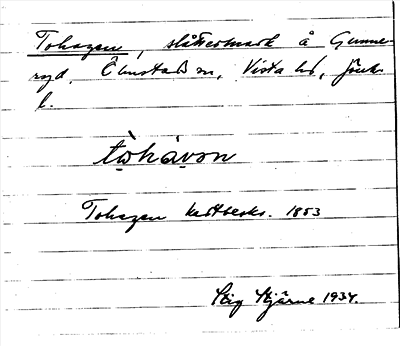 Tohagen, slåttermark å Gunne-
ryd, Ölmstads sn, Vista hd, Jönk.
l.
tòhàvən
Tohagen kartbeskr. 1853
Stig Stjärne 1934.